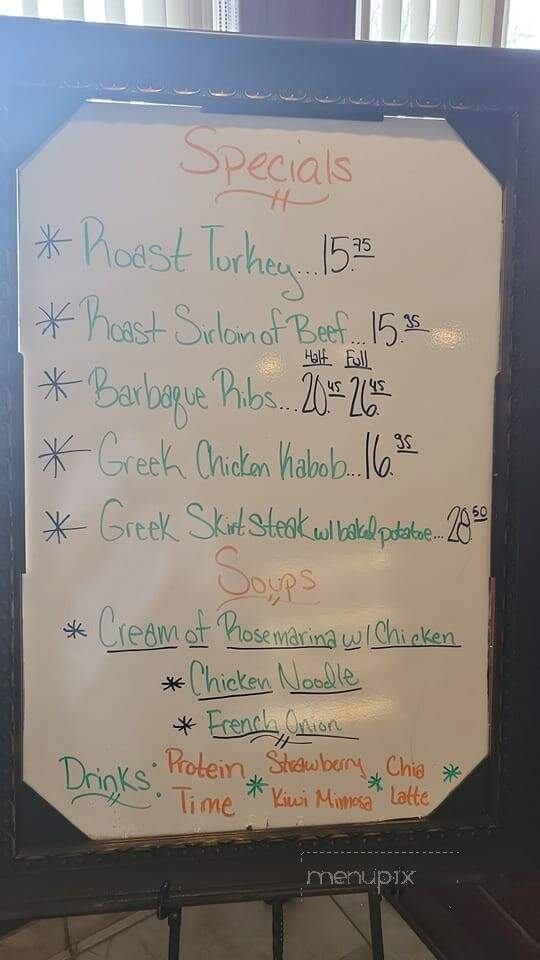 Specials
* Roast Turkey...15.75
* Roast Sirloin of Beef...15.95
Half Full
* Barbaque Ribs...20.45 26.45
* Greek Chicken Kabob...16.95
* Greek Skirt Steak w/ baked potatoe...28.50
Soups
* Cream of Rosemarina w/ Chicken
* Chicken Noodle
* French Onion
Drinks: Protein Time * Strawberry Kiwi Mimosa * Chia Latte *
menupix